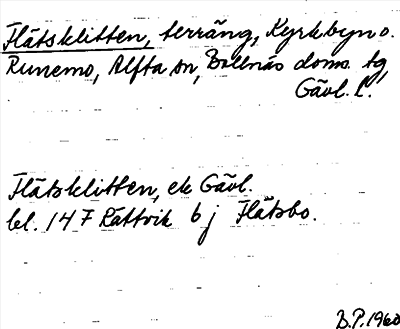 Flätsklitten, terräng, Kyrkbyn o.
Runemo, Alfta sn, Bollnäs doms. tg,
Gävl. L.
Flätsklitten, ek Gävl.
bl. 14 F Rättvik 6 j Flätsbo.
B.P. 1960